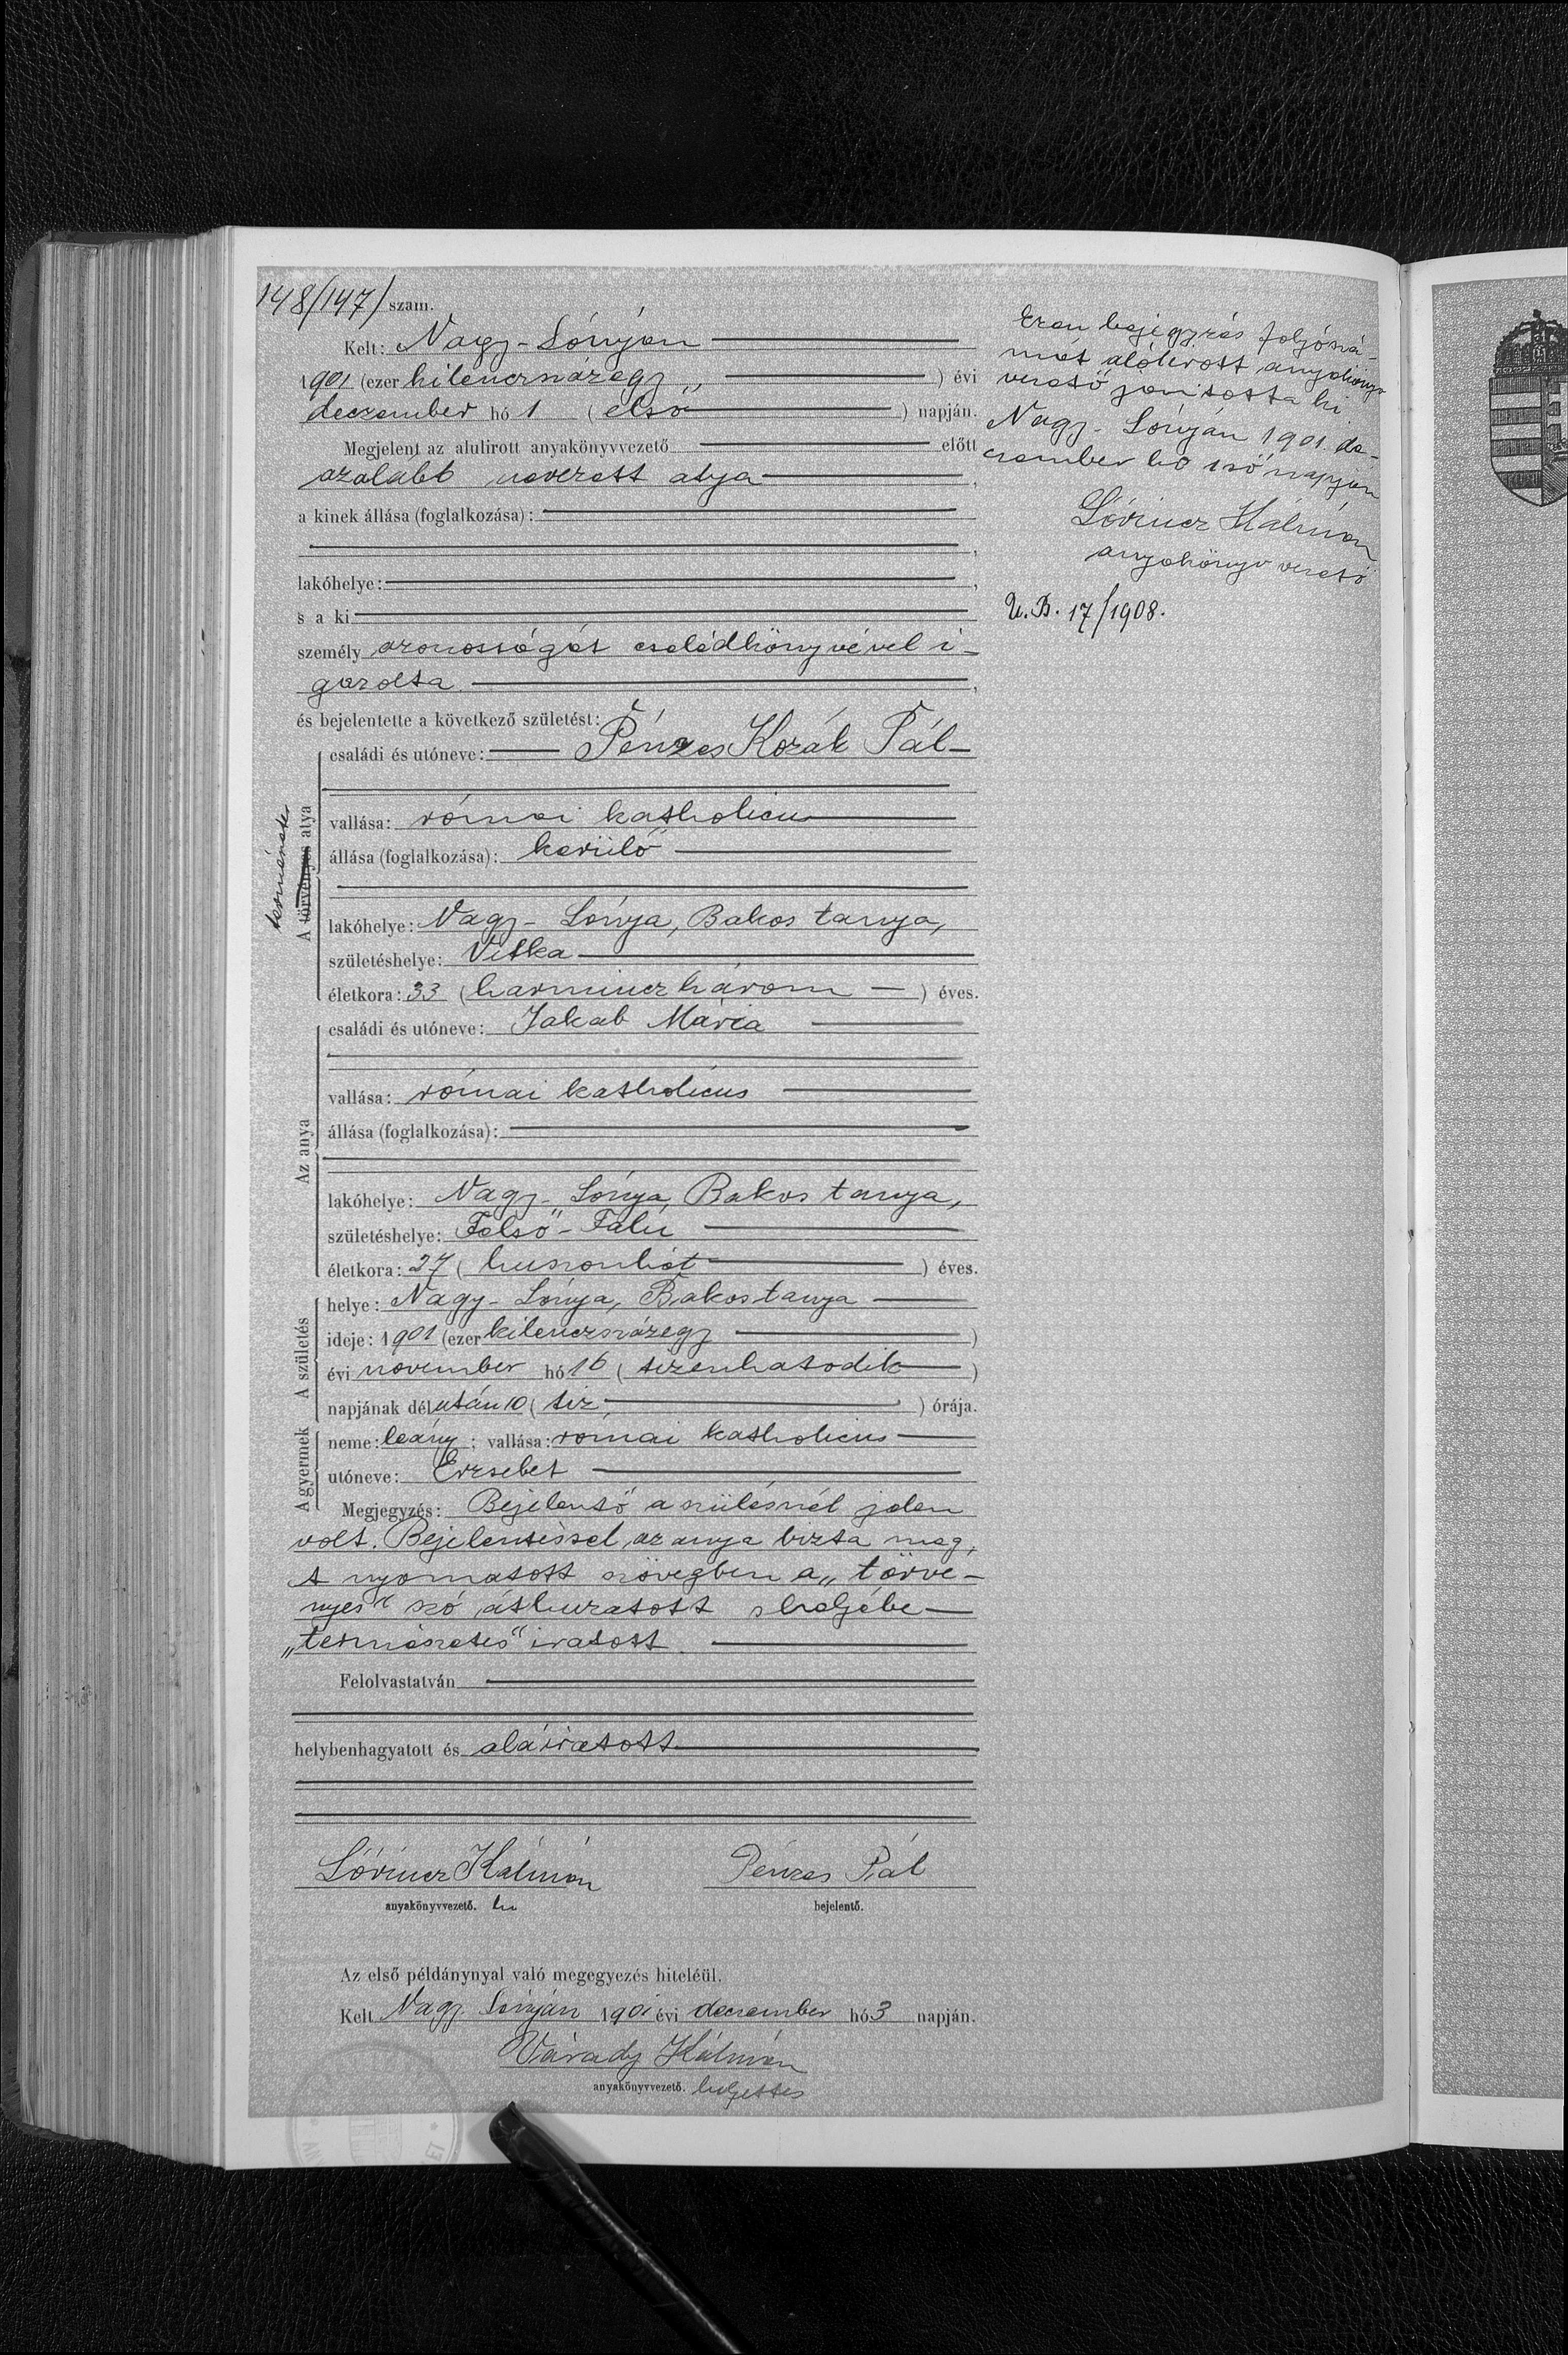 148/147/ szám.
Kelt: Nagy-Lónyán
1901 (ezer kilenczszázegy „ ) évi
deczember hó 1 (első ) napján.
Megjelent az alulirott anyakönyvvezető előtt
azalább nevezett atya ,
a kinek állása (foglalkozása):
,
lakóhelye: ,
s a ki
személy azonosságát családkönyvével i-
gazolta ,
és bejelentette a következő születést:
természetes
A törvényes atya
családi és utóneve: Pénzes Kozák Pál
vallása: római katholicu
állása (foglalkozása): kerülő
lakóhelye: Nagy-Lónya, Bakos tanya,
születéshelye: Vitka
életkora: 33 (harminczhárom ) éves.
Az anya
családi és utóneve: Jakab Mária
vallása: római katholicus
állása (foglalkozása):
lakóhelye: Nagy-Lónya Bakos tanya,
születéshelye: Felső-Falú
életkora: 27 (huszonhét ) éves.
A születés
helye: Nagy-Lónya, Bakostanya
ideje: 1901 (ezer kilenczszázegy )
évi november hó 16 (tizenhatodik )
napjának délután 10 (tiz ) órája.
A gyermek
neme: leány; vallása: római katholicus
utóneve: Erzsebet
Megjegyzés: Bejelentő a szülésnél jelen
volt. Bejelentéssel az anya bizta meg,
A nyomatott szövegben a „törvé-
nyes" szó áthuzatott s helyébe
„természetes" iratott.
Felolvastatván
helybenhagyatott és aláiratott
Lőrincz Kálmán
anyakönyvvezető.
Pénzes Pál
bejelentő.
Az első példánynyal való megegyezés hiteléül.
Kelt Nagy Lónyán 1901 évi deczember hó 3 napján.
Várady Kálmán
anyakönyvvezető. helyettes
Ezen bejegyzés folyószá-
mát alólirott anyakönyv
vezető javitotta ki
Nagy-Lónyán 1901. de-
czember hó 1ső napján
Lőrincz Kálmán
anyakönyv vezető
U. B. 17/1908.